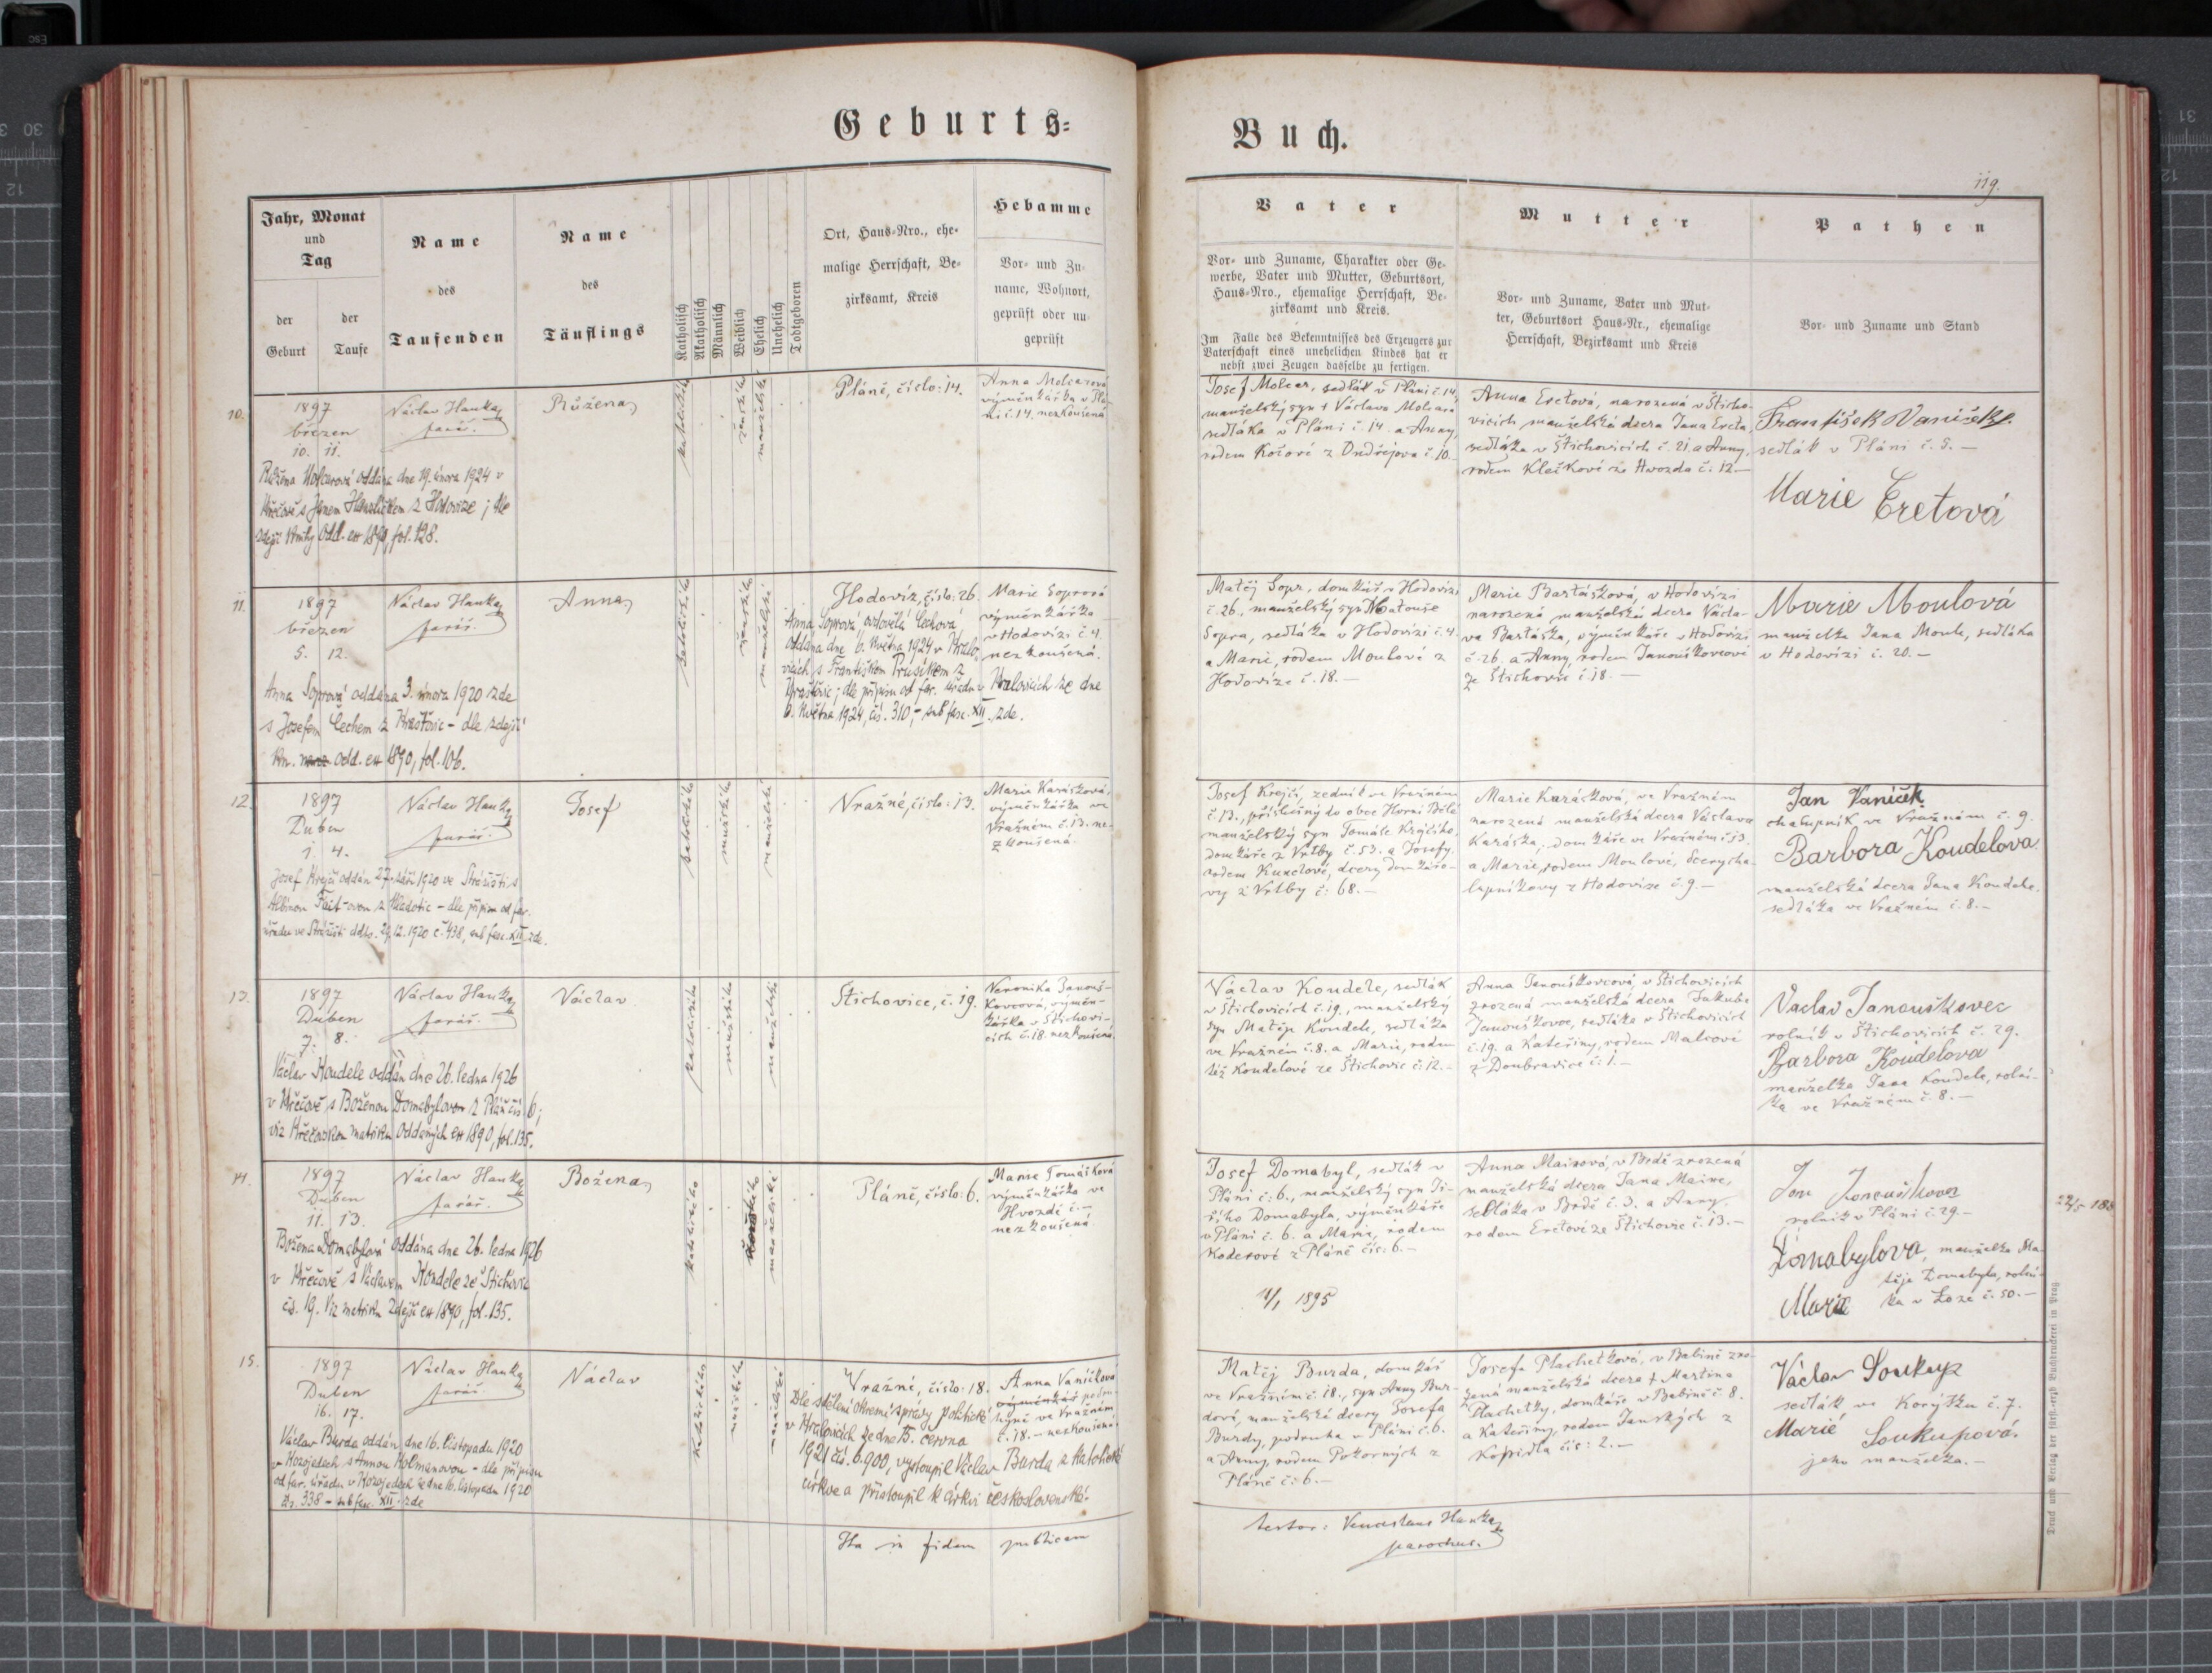 Geburts=
Buch.
119.
Jahr, Monat
und
Tag
der
Geburt
der
Taufe
Name
des
Taufenden
Name
des
Täuflings
Katholisch
Akatholisch
Männlich
Weiblich
Ehelich
Unehelich
Todtgeboren
Ort, Haus-Nro., ehe-
malige Herrschaft, Be-
zirksamt, Kreis
Hebamme
Vor- und Zu-
name, Wohnort,
geprüft oder un-
geprüft
Vater
Vor- und Zuname, Charakter oder Ge-
werbe, Vater und Mutter, Geburtsort,
Haus-Nro., ehemalige Herrschaft, Be-
zirksamt und Kreis.
Im Falle des Bekenntnisses des Erzeugers zur
Vaterschaft eines unehelichen Kindes hat er
nebst zwei Zeugen dasselbe zu fertigen.
Mutter
Vor- und Zuname, Vater und Mut-
ter, Geburtsort Haus-Nr., ehemalige
Herrschaft, Bezirksamt und Kreis
Pathen
Vor- und Zuname und Stand
10.
1897
březen
10. 11.
Václav Hanka
farář.
Růžena
katolického
ženského
manželské
Pláně, číslo: 14.
Anna Molcarová
výměnkářka v Plá-
ni č. 14. nezkoušená
Růžena Molcarová oddána dne 19. února 1924 v
Křečově s Janem Havlíčkem z Hodovíze; dle
zdejší knihy odd. ex 1890, fol. 128.
Josef Molcar, sedlák v Pláni č. 14,
manželský syn † Václava Molcara
sedláka v Pláni č. 14. a Anny,
rodem Kočové z Ondřejova č. 10.
Anna Eretová, narozená v Šticho-
vicích manželská dcera Jana Ereta,
sedláka v Štichovicích č. 21. a Anny,
rodem Klečkové ze Hvozda č. 12.—
František Vaníček
sedlák v Pláni č. 5. —
Marie Eretová
11.
1897
březen
5. 12.
Václav Hanka
farář.
Anna
katolického
ženského
manželské
Hodovíz, číslo: 26.
Marie Soprová
výměnkářka
v Hodovízi č. 4.
nezkoušená.
Anna Soprová ovdovělá Čechová
oddána dne 6. května 1924 v Kralo-
vicích s Františkem Průškem z
Hradecka; dle přípisu od far. úřadu v Kralovicích ze dne
6. května 1924, čís. 310, — sub fasc. XII. zde.
Anna Soprová oddána 3. února 1920 zde
s Josefem Čechem z — dle zdejší
kn. odd. ex 1890, fol. 106.
Matěj Sopr, domkář v Hodovízi
č. 26., manželský syn Matouše
Sopra, sedláka v Hodovízi č. 4.
a Marie, rodem Moulové z
Hodovíze č. 18. —
Marie Bartášková, v Hodovízi
narozená manželská dcera Václa-
va Bartáška, výměnkáře v Hodovízi
č. 26. a Anny, rodem Janouškovcové
ze Štichovic č. 18. —
Marie Moulová
manželka Jana Moule, sedláka
v Hodovízi č. 20. —
12.
1897
Duben
1. 4.
Václav Hanka
farář.
Josef
katolického
mužského
manželské
Vražné, číslo: 13.
Marie Karásková,
výměnkářka ve
Vražném č. 13. ne-
zkoušená.
Josef Krejčí oddán 27. září 1920 ve Strážišti s
Albinou Fait-ovou z Mladotic — dle přípisu od far.
úřadu ve Strážišti ddto. 29.12.1920 č. 438, sub fasc. XII. zde.
Josef Krejčí, zedník ve Vražném
č. 13., příslušný do obce Horní Bělé
manželský syn Tomáše Krejčího,
domkáře z Vrtby č. 53. a Josefy,
rodem Kunclové, dcery domkářo-
vy z Vrtby č: 68. —
Marie Karásková, ve Vražném
narozená manželská dcera Václava
Karáska, domkáře ve Vražném č. 13.
a Marie, rodem Moulové, dcery cha-
lupníkovy z Hodovíze č. 9. —
Jan Vaníček
chalupník ve Vražném č. 9.
Barbora Koudelova
manželská dcera Jana Koudele
sedláka ve Vražném č. 8. —
13.
1897
Duben
7. 8.
Václav Hanka
farář.
Václav
katolického
mužského
manželské
Štichovice, č. 19.
Veronika Janouš-
kovcová, výměn-
kářka v Štichovi-
cích č. 18. nezkoušená.
Václav Koudele oddán dne 26. ledna 1926
v Křečově s Boženou Domabylovou z Pláň čís. 6;
viz Křečovskou matriku oddaných ex 1890, fol. 135.
Václav Koudele, sedlák
v Štichovicích č. 19., manželský
syn Matěje Koudele, sedláka
ve Vražném č. 8. a Marie, rodem
též Koudelové ze Štichovic č. 12. —
Anna Janouškovcová, v Štichovicích
zrozená manželská dcera Jakuba
Janouškovce, sedláka v Štichovicích
č. 19. a Kateřiny, rodem Malcové
z Doubravice č. 1. —
Vaclav Janouškovec
rolník v Štichovicích č. 29.
Barbora Koudelova
manželka Jana Koudele, rolní-
ka ve Vražném č. 8. —
14.
1897
Duben
11. 13.
Václav Hanka
farář.
Božena
katolického
ženského
manželské
Pláně, číslo: 6.
Marie Tomášková
výměnkářka ve
Hvozdě č. —
nezkoušená.
Božena Domabylová oddána dne 26. ledna 1926
v Křečově s Václavem Koudele ze Štichovic
čís. 19. Viz matriku zdejší ex 1890, fol. 135.
Josef Domabyl, sedlák v
Pláni č: 6., manželský syn Ji-
řího Domabyla, výměnkáře
v Pláni č. 6. a Marie, rodem
Koderové z Pláně čís: 6. —
11/1 1895
Anna Mairová, v Brdě zrozená
manželská dcera Jana Maire,
sedláka v Brdě č. 3. a Anny,
rodem Eretové ze Štichovic č. 13. —
Jan Janouškovec
rolník v Pláni č. 29. —
Domabylova, manželka Ma-
těje Domabyla, rolní-
Marie ka v Loze č. 50. —
22/5 186
15.
1897
Duben
16. 17.
Václav Hanka
farář.
Václav
katolického
mužského
manželské
Vražné, číslo: 18.
Anna Vaníčková
výměnkář podru-
hyně ve Vražném
č. 18. — nezkoušená.
Dle sdělení okresní správy politické
v Kralovicích ze dne 15. června
1921 čís. 6.900, vystoupil Václav Burda z katolické
církve a přistoupil k církvi československé.
Václav Burda oddán dne 16. listopadu 1920
v Kozojedech s Annou Holmanovou — dle přípisu
od far. úřadu v Kozojedech ze dne 16. listopadu 1920
čís. 338 — sub fasc. XII. zde
Matěj Burda, domkář
ve Vražném č. 18., syn Anny Bur-
dové, manželské dcery Josefa
Burdy, podruha v Pláni č. 6.
a Anny, rodem Pokorných z
Pláně č: 6. —
Josefa Plachetková, v Babině zro-
zená manželská dcera † Martina
Plachetky, domkáře v Babině č. 8.
a Kateřiny, rodem Janských z
Kopidla čís: 2. —
Václav Soukup
sedlák ve Korýtku č. 7.
Marié Soukupová.
jeho manželka. —
Ita in fidem publicam
testor: Venceslaus Hanka
parochus.
Druck und Verlag der fürst.-erzb. Buchdruckerei in Prag